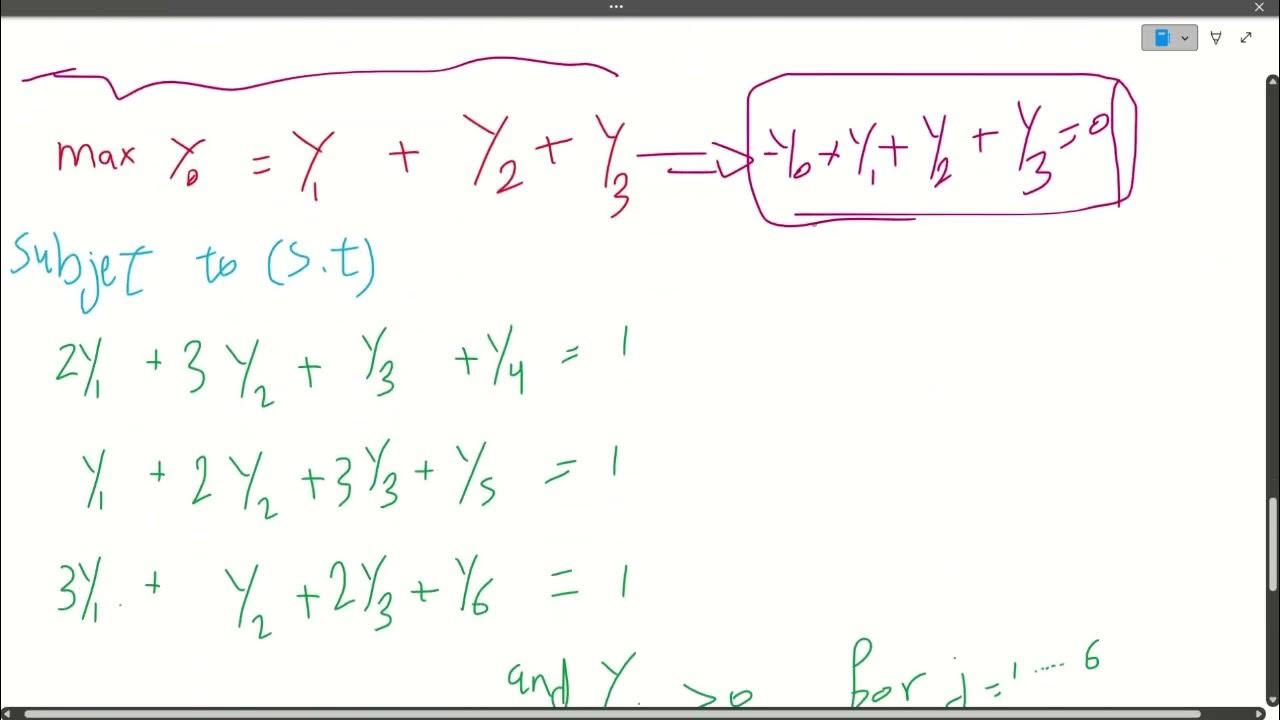 max Y₀ = Y₁ + Y₂ + Y₃ ⇒ -Y₀ + Y₁ + Y₂ + Y₃ = 0
Subjet to (S.t)
2Y₁ + 3Y₂ + Y₃ + Y₄ = 1
Y₁ + 2Y₂ + 3Y₃ + Y₅ = 1
3Y₁ + Y₂ + 2Y₃ + Y₆ = 1
and Y >0 for j = 1 ..... 6